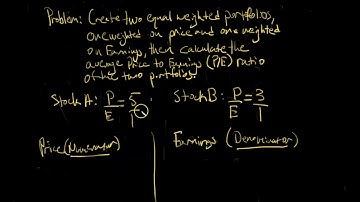 Problem: Create two equal weighted portfolios,
one weighted on price and one weighted
on Earnings, then calculate the
average Price to Earnings (P/E) ratio
of the two portfolios.
Stock A: P/E = 5/1 Stock B: P/E = 3/1
Price (Numerator) Earnings (Denominator)